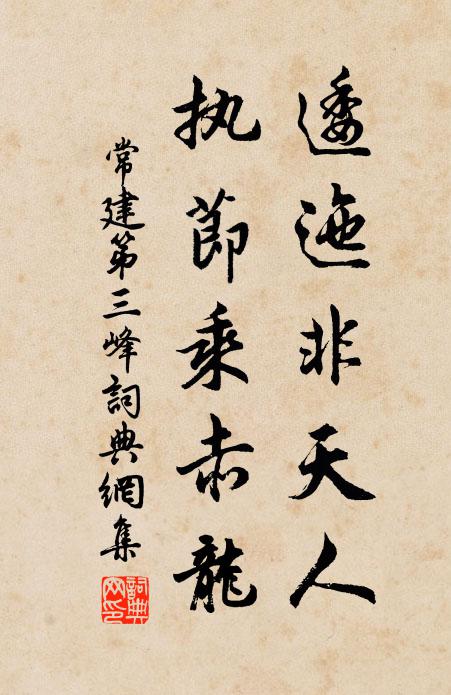 逶迤非天人
执節乘赤龍
常建第三峰詞典網集
詞典网印